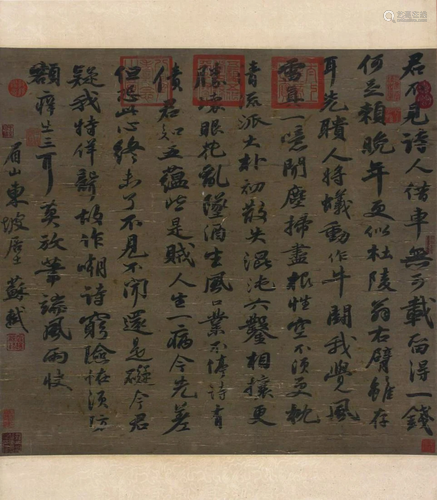 君不見詩人借車無可載留得一錢
何足賴晚年更似杜陵翁右臂雖存
耳先聵人將蟻動作牛鬪我覺風
雷真一噫聞塵掃盡根性空不須更枕
清流派大朴初散失混沌六鑿相攘更
勝壞眼花亂墜酒生風口業不停詩有
債君知五蘊皆是賊人生一病今先差
但恐此心終未了不見不聞還是礙今君
疑我特佯聾故作嘲詩窮險怪須防
額痒出三耳莫放筆端風雨快
眉山東坡居士蘇軾